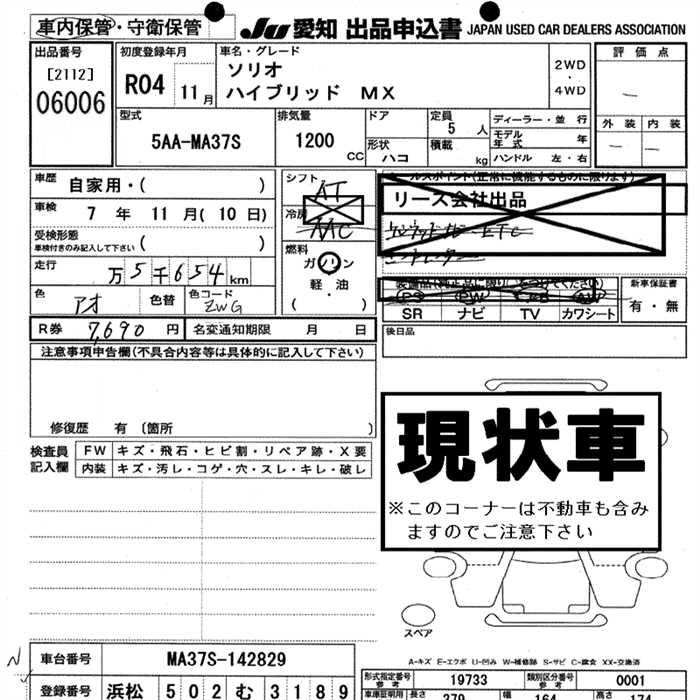 車内保管・守衛保管 JU 愛知 出品申込書 JAPAN USED CAR DEALERS ASSOCIATION
出品番号 [2112] 06006
初度登録年月 R04 11月
車名・グレード
ソリオ
ハイブリッド MX
2WD・4WD
評価点 —
外装 内装
— —
型式 5AA-MA37S
排気量 1200 CC
ドア
形状 ハコ
定員 5 人
積載 kg
ディーラー・並行
モデル年式 年
ハンドル 左・右
車歴 自家用・( )
車検 7 年 11 月( 10 日)
受検形態
車検付きのみ記入して下さい ( )
走行 万 5 千 654 km
色 アオ 色替 色コード ZWG
シフト AT
冷房 AAC
燃料
ガソリン
軽・油
( )
セールスポイント(正常に機能するものに限ります)
リース会社出品
装備品(純正品に限り○をつけてください)
PS PW AW
SR ナビ TV カワシート
新車保証書
有・無
後日品
R券 7,690 円 名変通知期限 月 日
注意事項申告欄(不具合内容等は具体的に記入して下さい)
修復歴 有 〔箇所 〕
検査員記入欄
FW キズ・飛石・ヒビ割・リペア跡・X要
内装 キズ・汚レ・コゲ・穴・スレ・キレ・破レ
現状車
※このコーナーは不動車も含み
ますのでご注意下さい
スペア
A-キズ E-エクボ U-凹み W-補修跡 S-サビ C-腐食 XX-交換済
車台番号 MA37S-142829
登録番号 浜松 502 む 3189
形式指定番号 参考 19733 類別区分番号 参考 0001
車庫証明用 長さ 379 幅 164 高さ 174